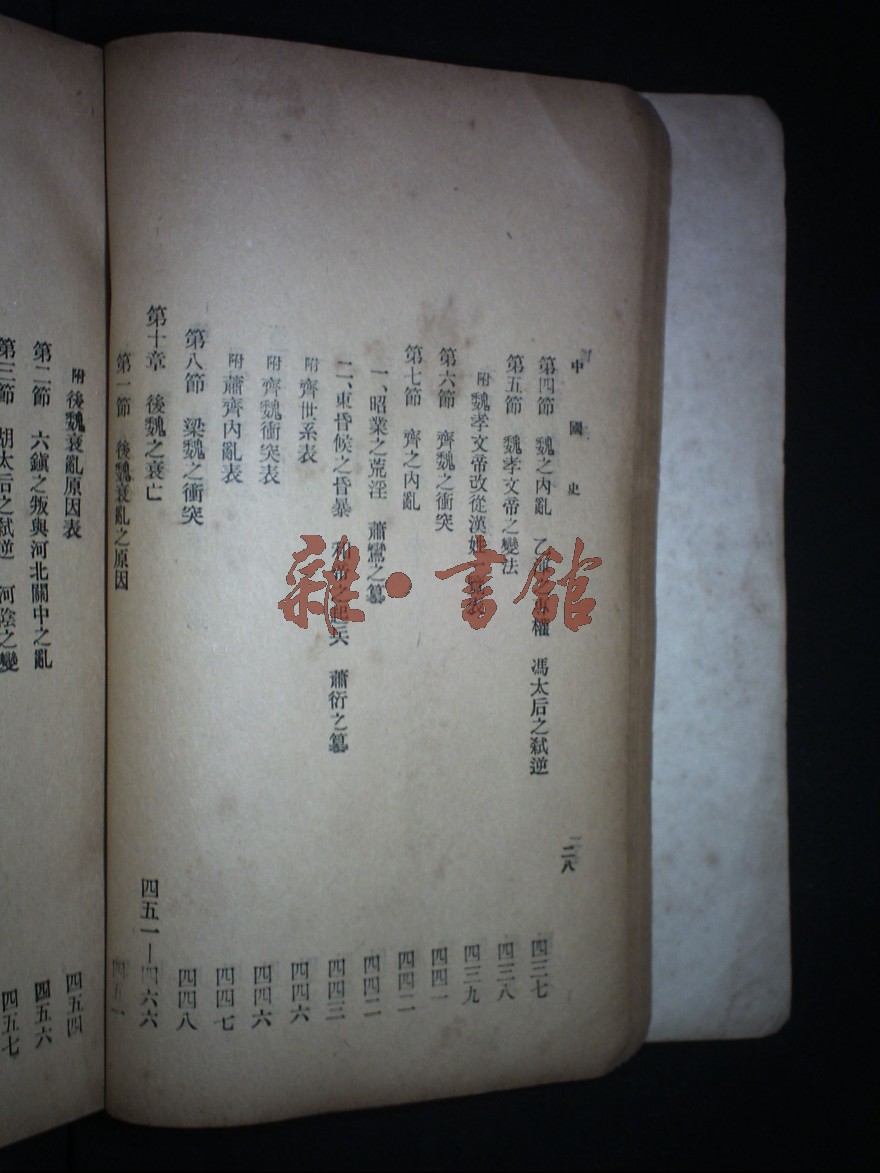 中國史
二八
第四節 魏之內亂 乙渾之專權 馮太后之弒逆 四三七
第五節 魏孝文帝之變法 四三八
附 魏孝文帝改從漢姓 四三九
第六節 齊魏之衝突 四四一
第七節 齊之內亂 四四二
一、昭業之荒淫 蕭鸞之篡 四四二
二、東昏候之昏暴 和帝之起兵 蕭衍之篡 四四三
附 齊世系表 四四六
附 齊魏衝突表 四四六
附 蕭齊內亂表 四四七
第八節 梁魏之衝突 四四八
第十章 後魏之衰亡 四五一—四六六
第一節 後魏衰亂之原因 四五一
附 後魏衰亂原因表 四五四
第二節 六鎮之叛與河北關中之亂 四五六
第三節 胡太后之弒逆 河陰之變 四五七
雜·書館